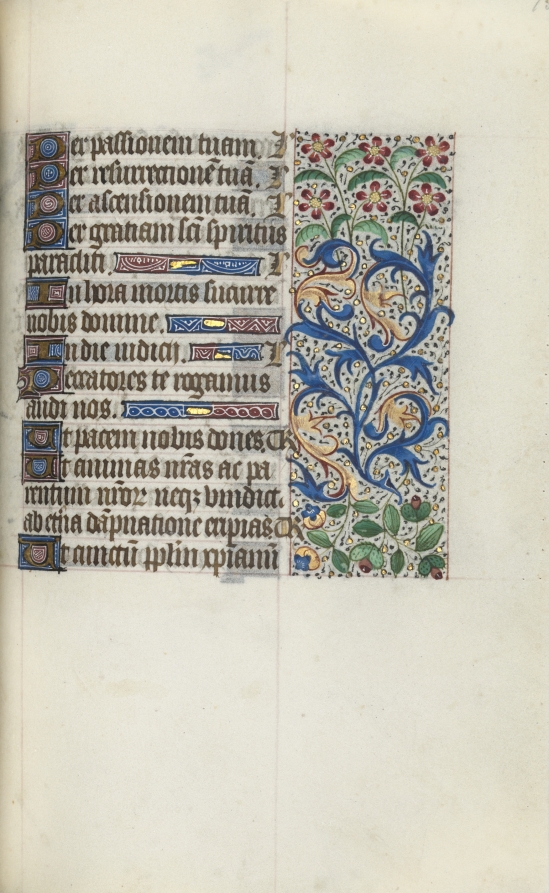 Per passionem tuam. Ꝉ
Per resurrectionē tuā. Ꝉ
Per ascensionem tuā. Ꝉ
Per gratiam scī spiritus
paracliti. Ꝉ
In hora mortis sucurre
nobis domine.
In die iudicij. Ꝉ
Peccatores te rogamus
audi nos.
Ut pacem nobis dones. Te R
Ut animas nr̄as ac pa
rentum nr̄oꝝ
ab et̄na dāpnatione eripias Te R
Ut cunctū pp̄lm xp̄ianū